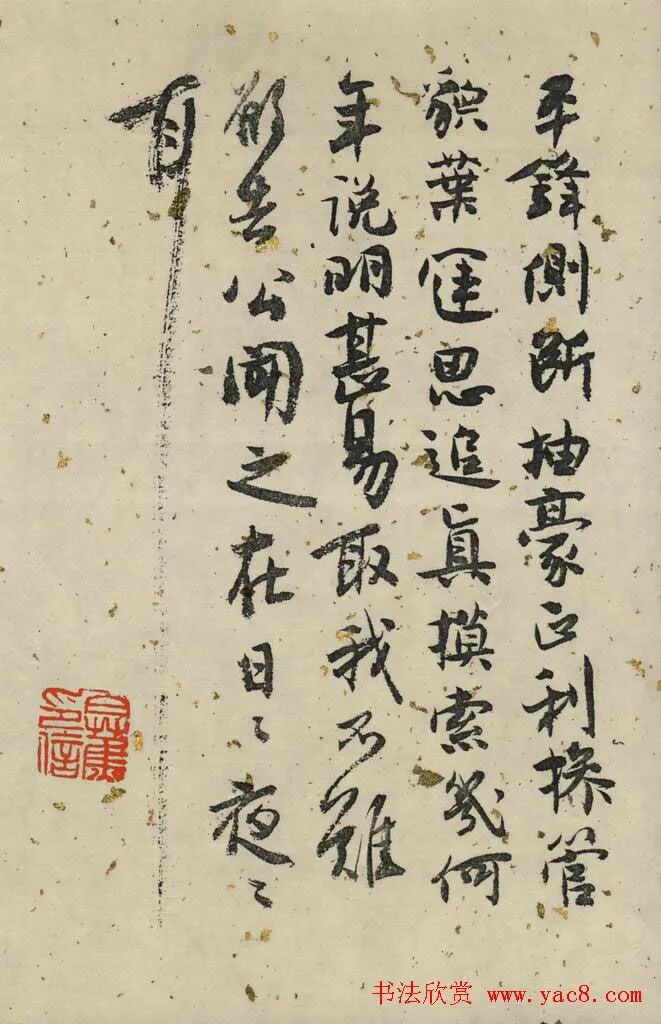 平鋒側所抽豪正利操管
葉思追真摸索幾何
年说明甚易取我不難
告公開之在日〻夜〻
书法欣赏 www.yac8.com